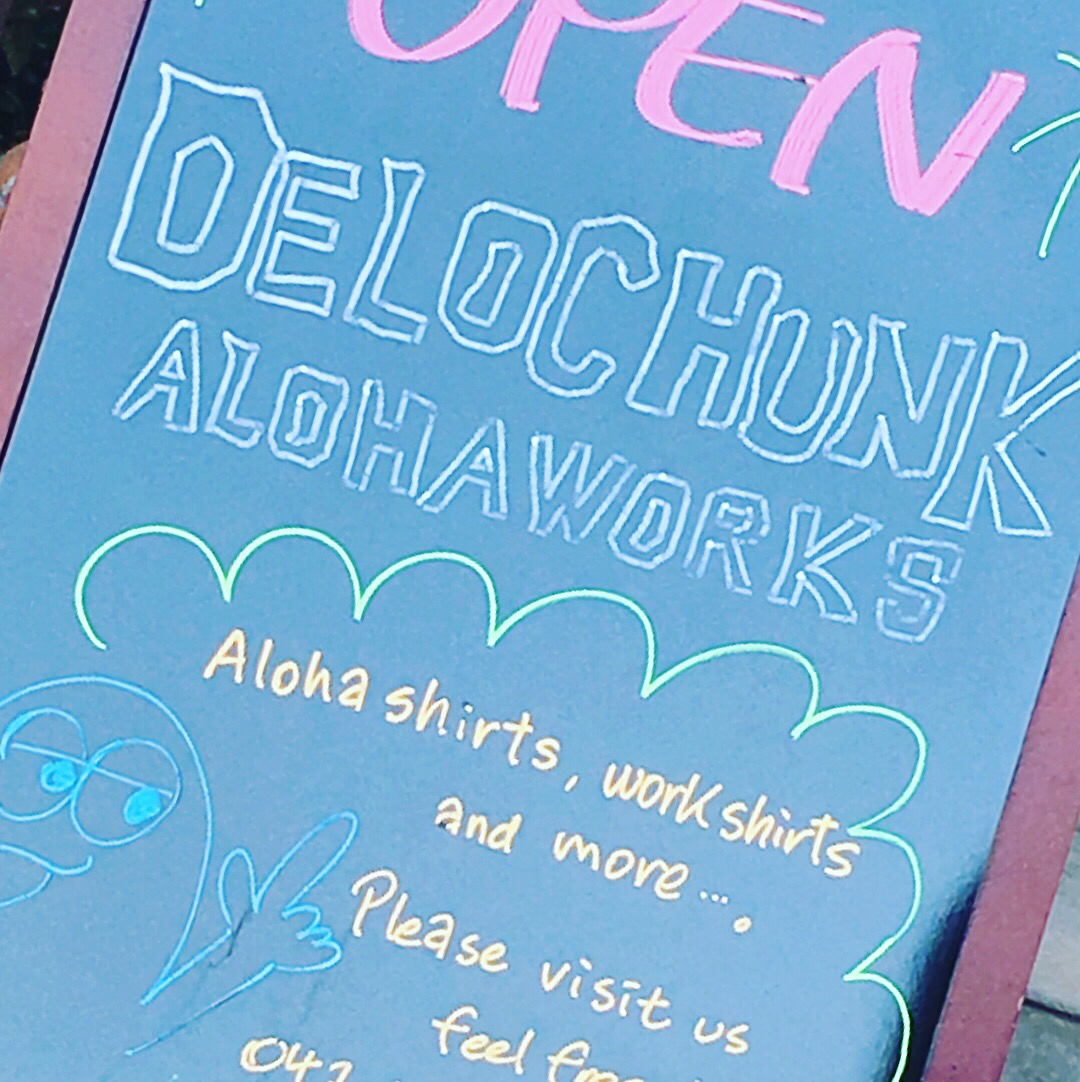 OPEN
DELOCHUNK
ALOHAWORKS
Aloha shirts, work shirts
and more ... .
Please visit us
feel free
042